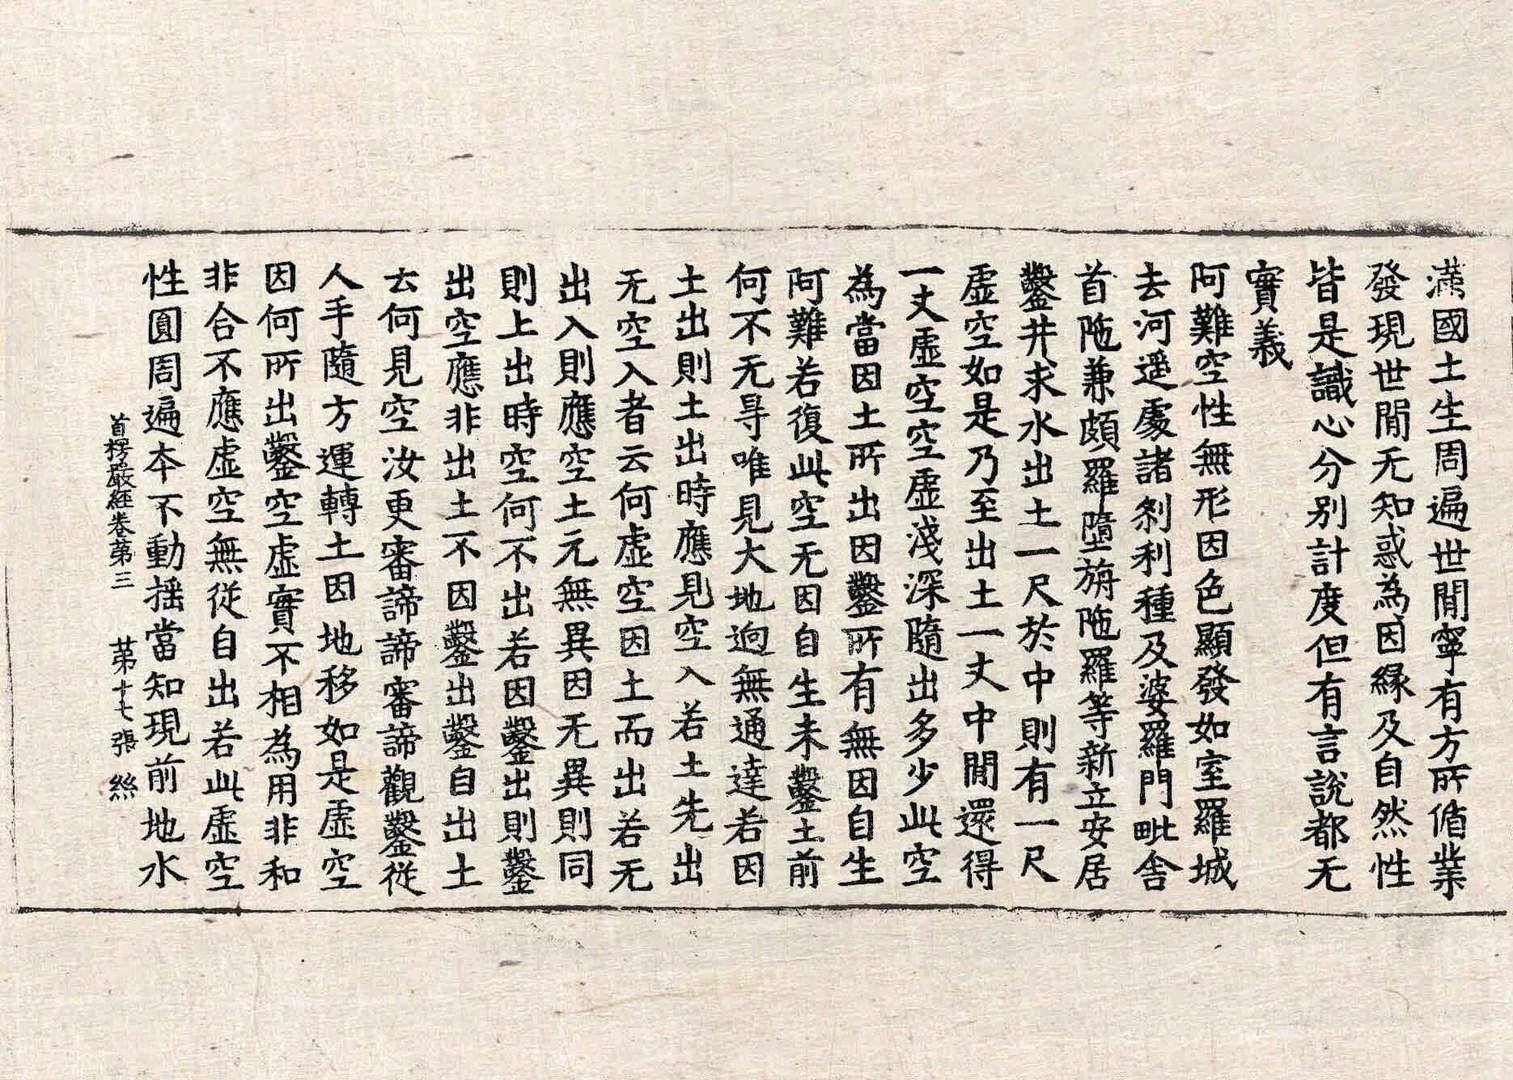 滿國土生周遍世間寧有方所循業
發現世間无知惑為因緣及自然性
皆是識心分別計度但有言說都无
實義
阿難空性無形因色顯發如室羅城
去河遥處諸刹利種及婆羅門毗舍
首陁兼頗羅墮旃陁羅等新立安居
鑿井求水出土一尺於中則有一尺
虛空如是乃至出土一丈中間還得
一丈虛空空虛淺深隨出多少此空
為當因土所出因鑿所有無因自生
阿難若復此空无因自生未鑿土前
何不无㝵唯見大地逈無通達若因
土出則土出時應見空入若土先出
无空入者云何虛空因土而出若无
出入則應空土元無異因无異則同
則土出時空何不出若因鑿出則鑿
出空應非出土不因鑿出鑿自出土
云何見空汝更審諦諦審諦觀鑿從
人手隨方運轉土因地移如是虛空
因何所出鑿空虛實不相為用非和
非合不應虛空無從自出若此虛空
性圓周遍本不動揺當知現前地水
首楞嚴經卷第三 苐十七張 絲